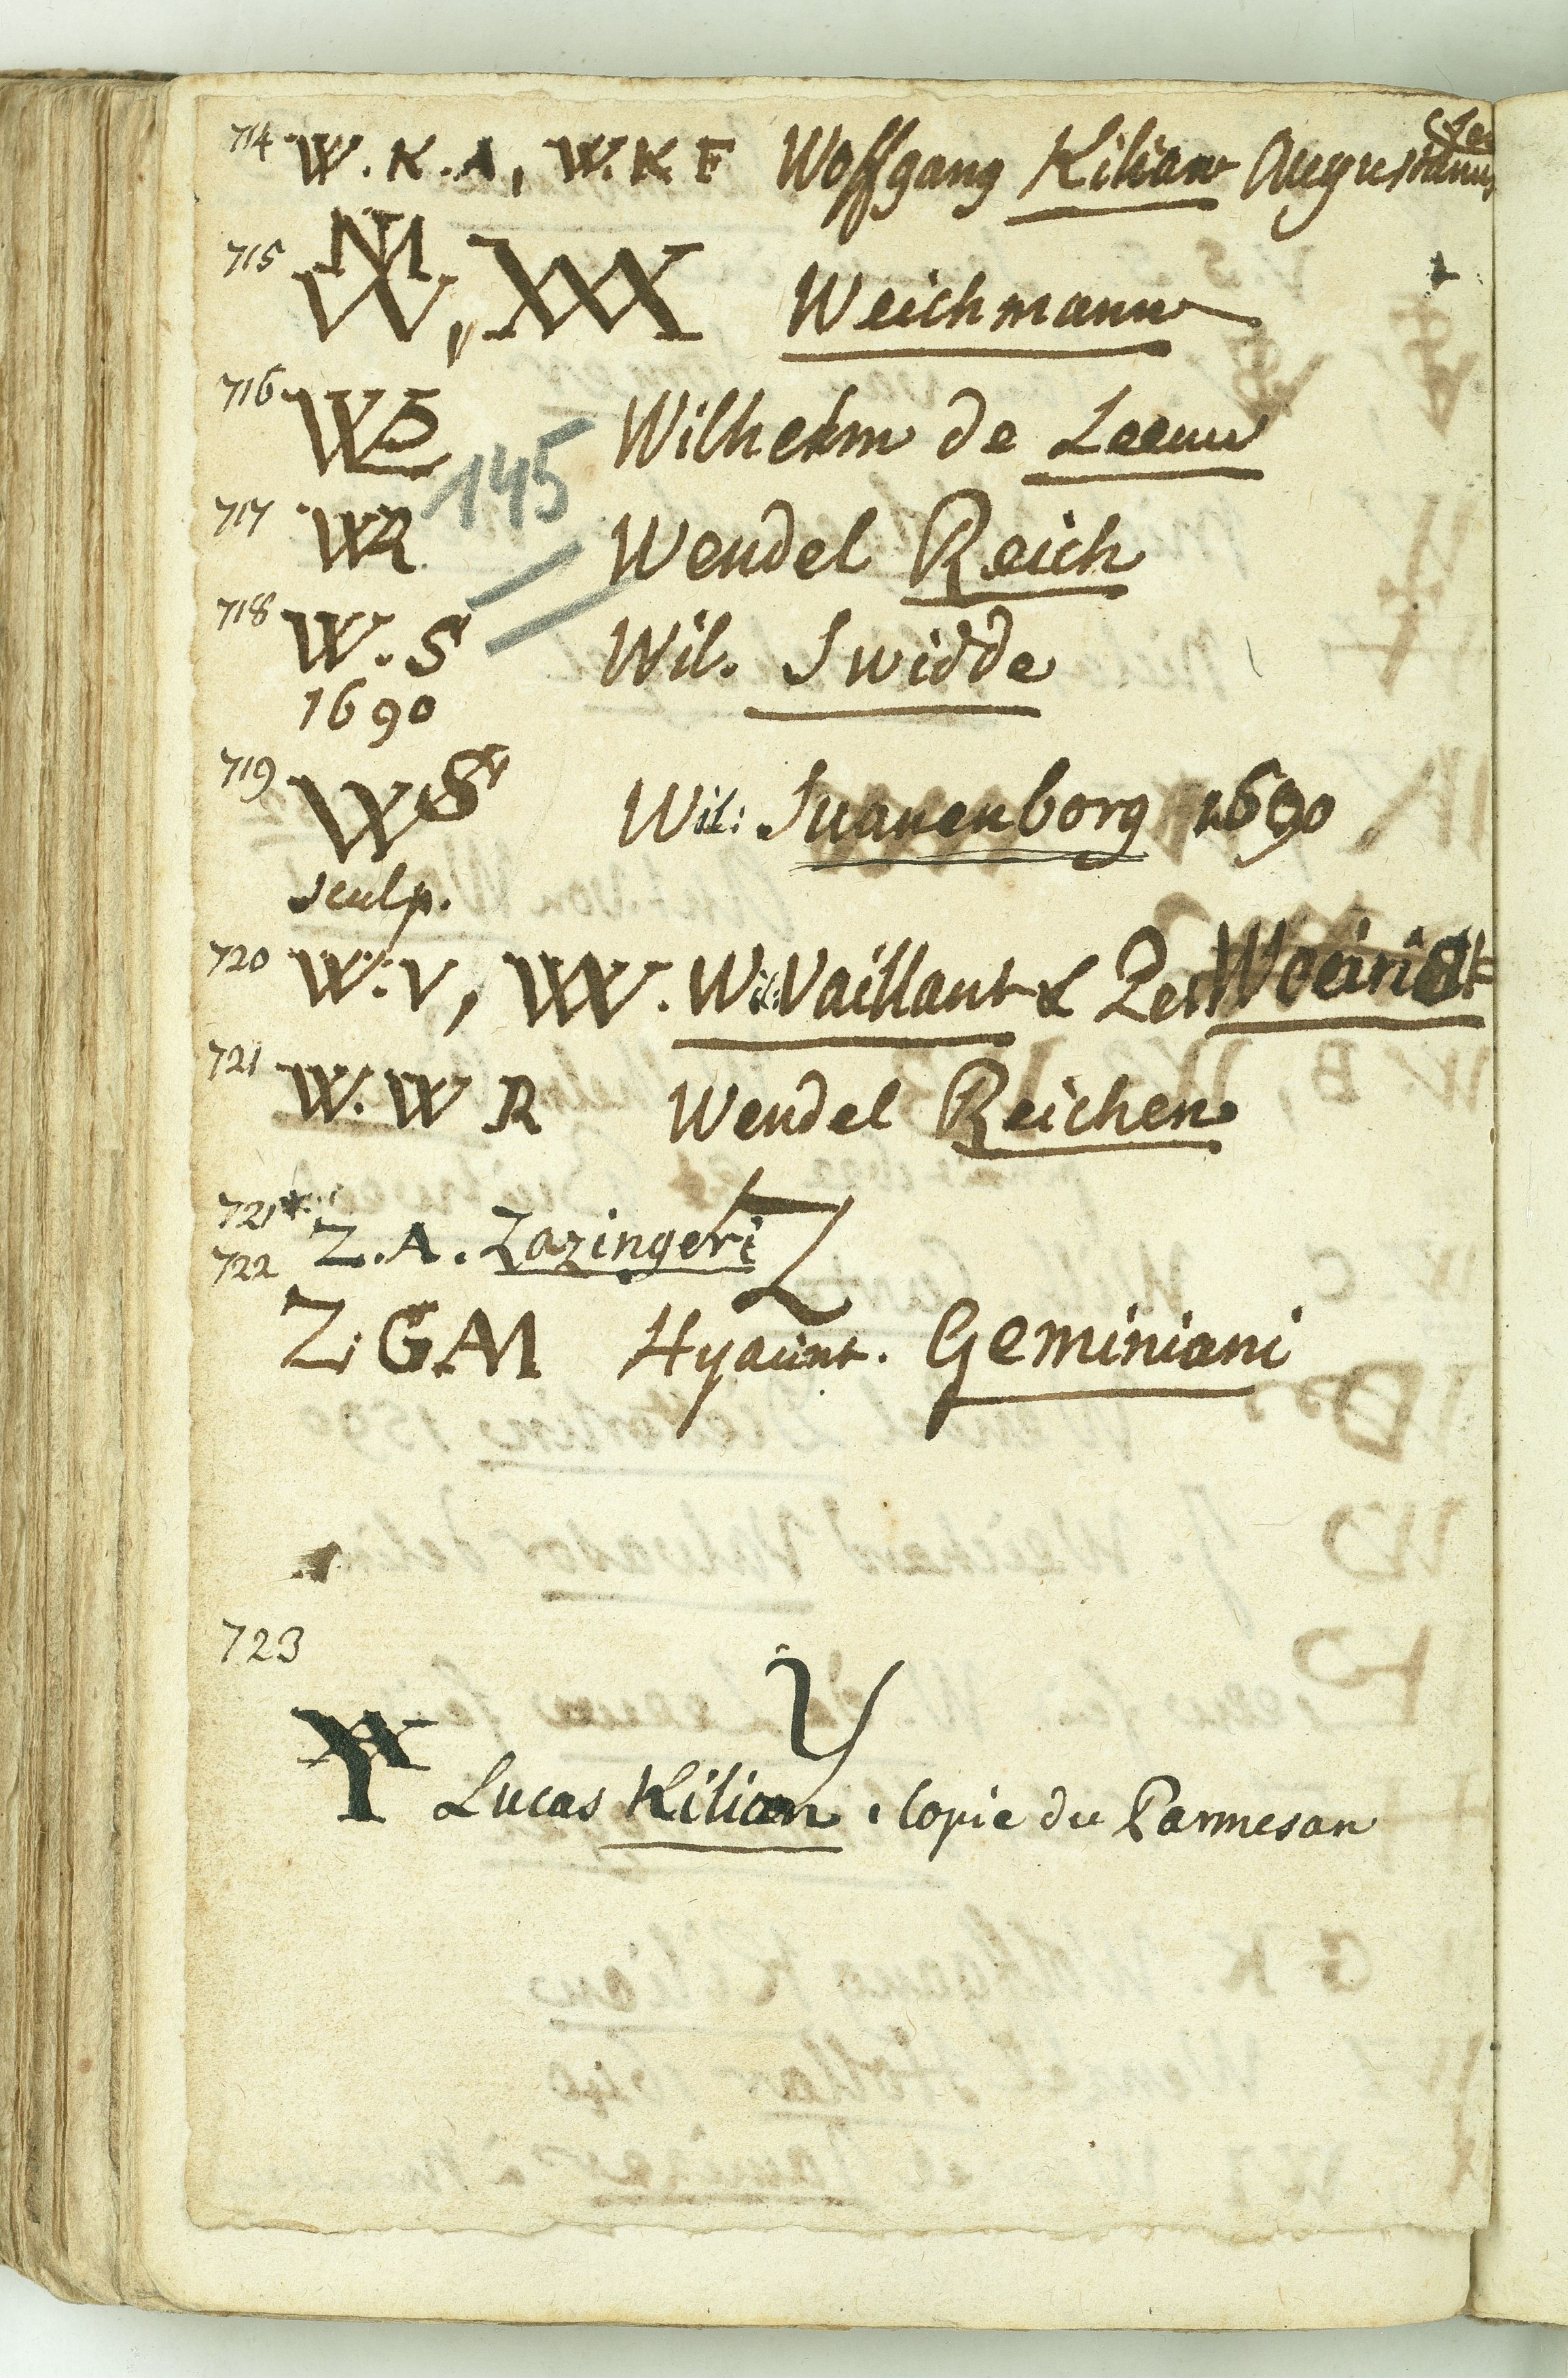 714 W. K. A, W. K. F Wolfgang Kilian Augustanus
715 W, WW Weichmann
716 W Wilhelm de Leeuw
145
717 WR Wendel Reich
718 W. S Wil. Swidde
1690
719 WS Wil: Suanenborg 1690
sculp.
720 W. V, VV. Wil: Vaillant & Woeiriot
721 W. W R Wendel Reichen
Z
721* Z. A. Zazingeri
722
Z. GAM Hyacint. Geminiani
723
Y
Lucas Kilian, Copie du Parmesan